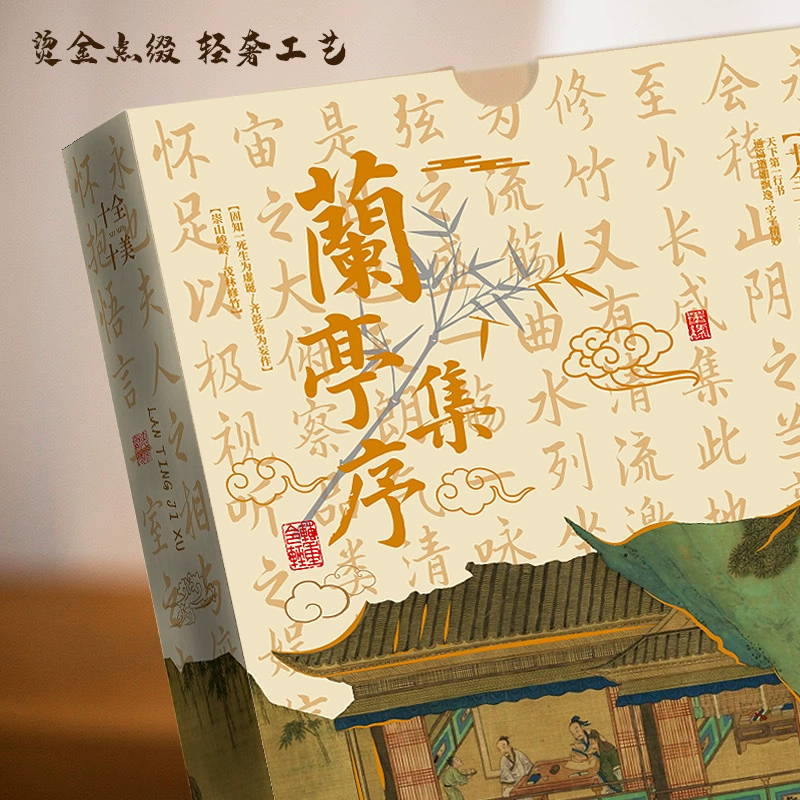 烫金点缀 轻奢工艺
蘭亭集序
【固知一死生为虚诞 齐彭殇为妄作】
【崇山峻岭 茂林修竹】
天下第一行书
十全
十美
LAN TING JI XU
永
会稽山阴之兰
至少长咸集此地
修竹又有清流激
流觞曲水列坐
弦之盛一觞一咏
是
宙之大俯察品类
怀足以极视听之娱信
永也夫人之相
怀抱悟言一室之